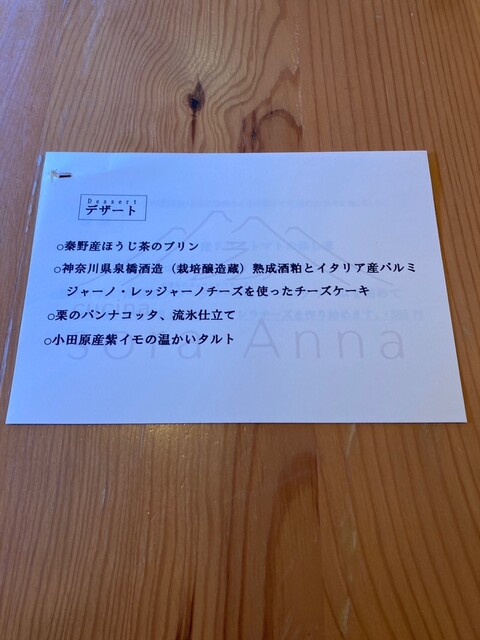 Dessert
デザート
○秦野産ほうじ茶のプリン
○神奈川県泉橋酒造（栽培醸造蔵）熟成酒粕とイタリア産パルミ
ジャーノ・レッジャーノチーズを使ったチーズケーキ
○栗のパンナコッタ、流氷仕立て
○小田原産紫イモの温かいタルト
cucina
sora Anna